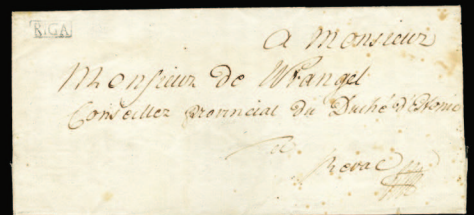 RIGA
A Monsieur
Monsieur de Wrangel
Conseiller Provincial du Duché d'Estonie
a
Reval